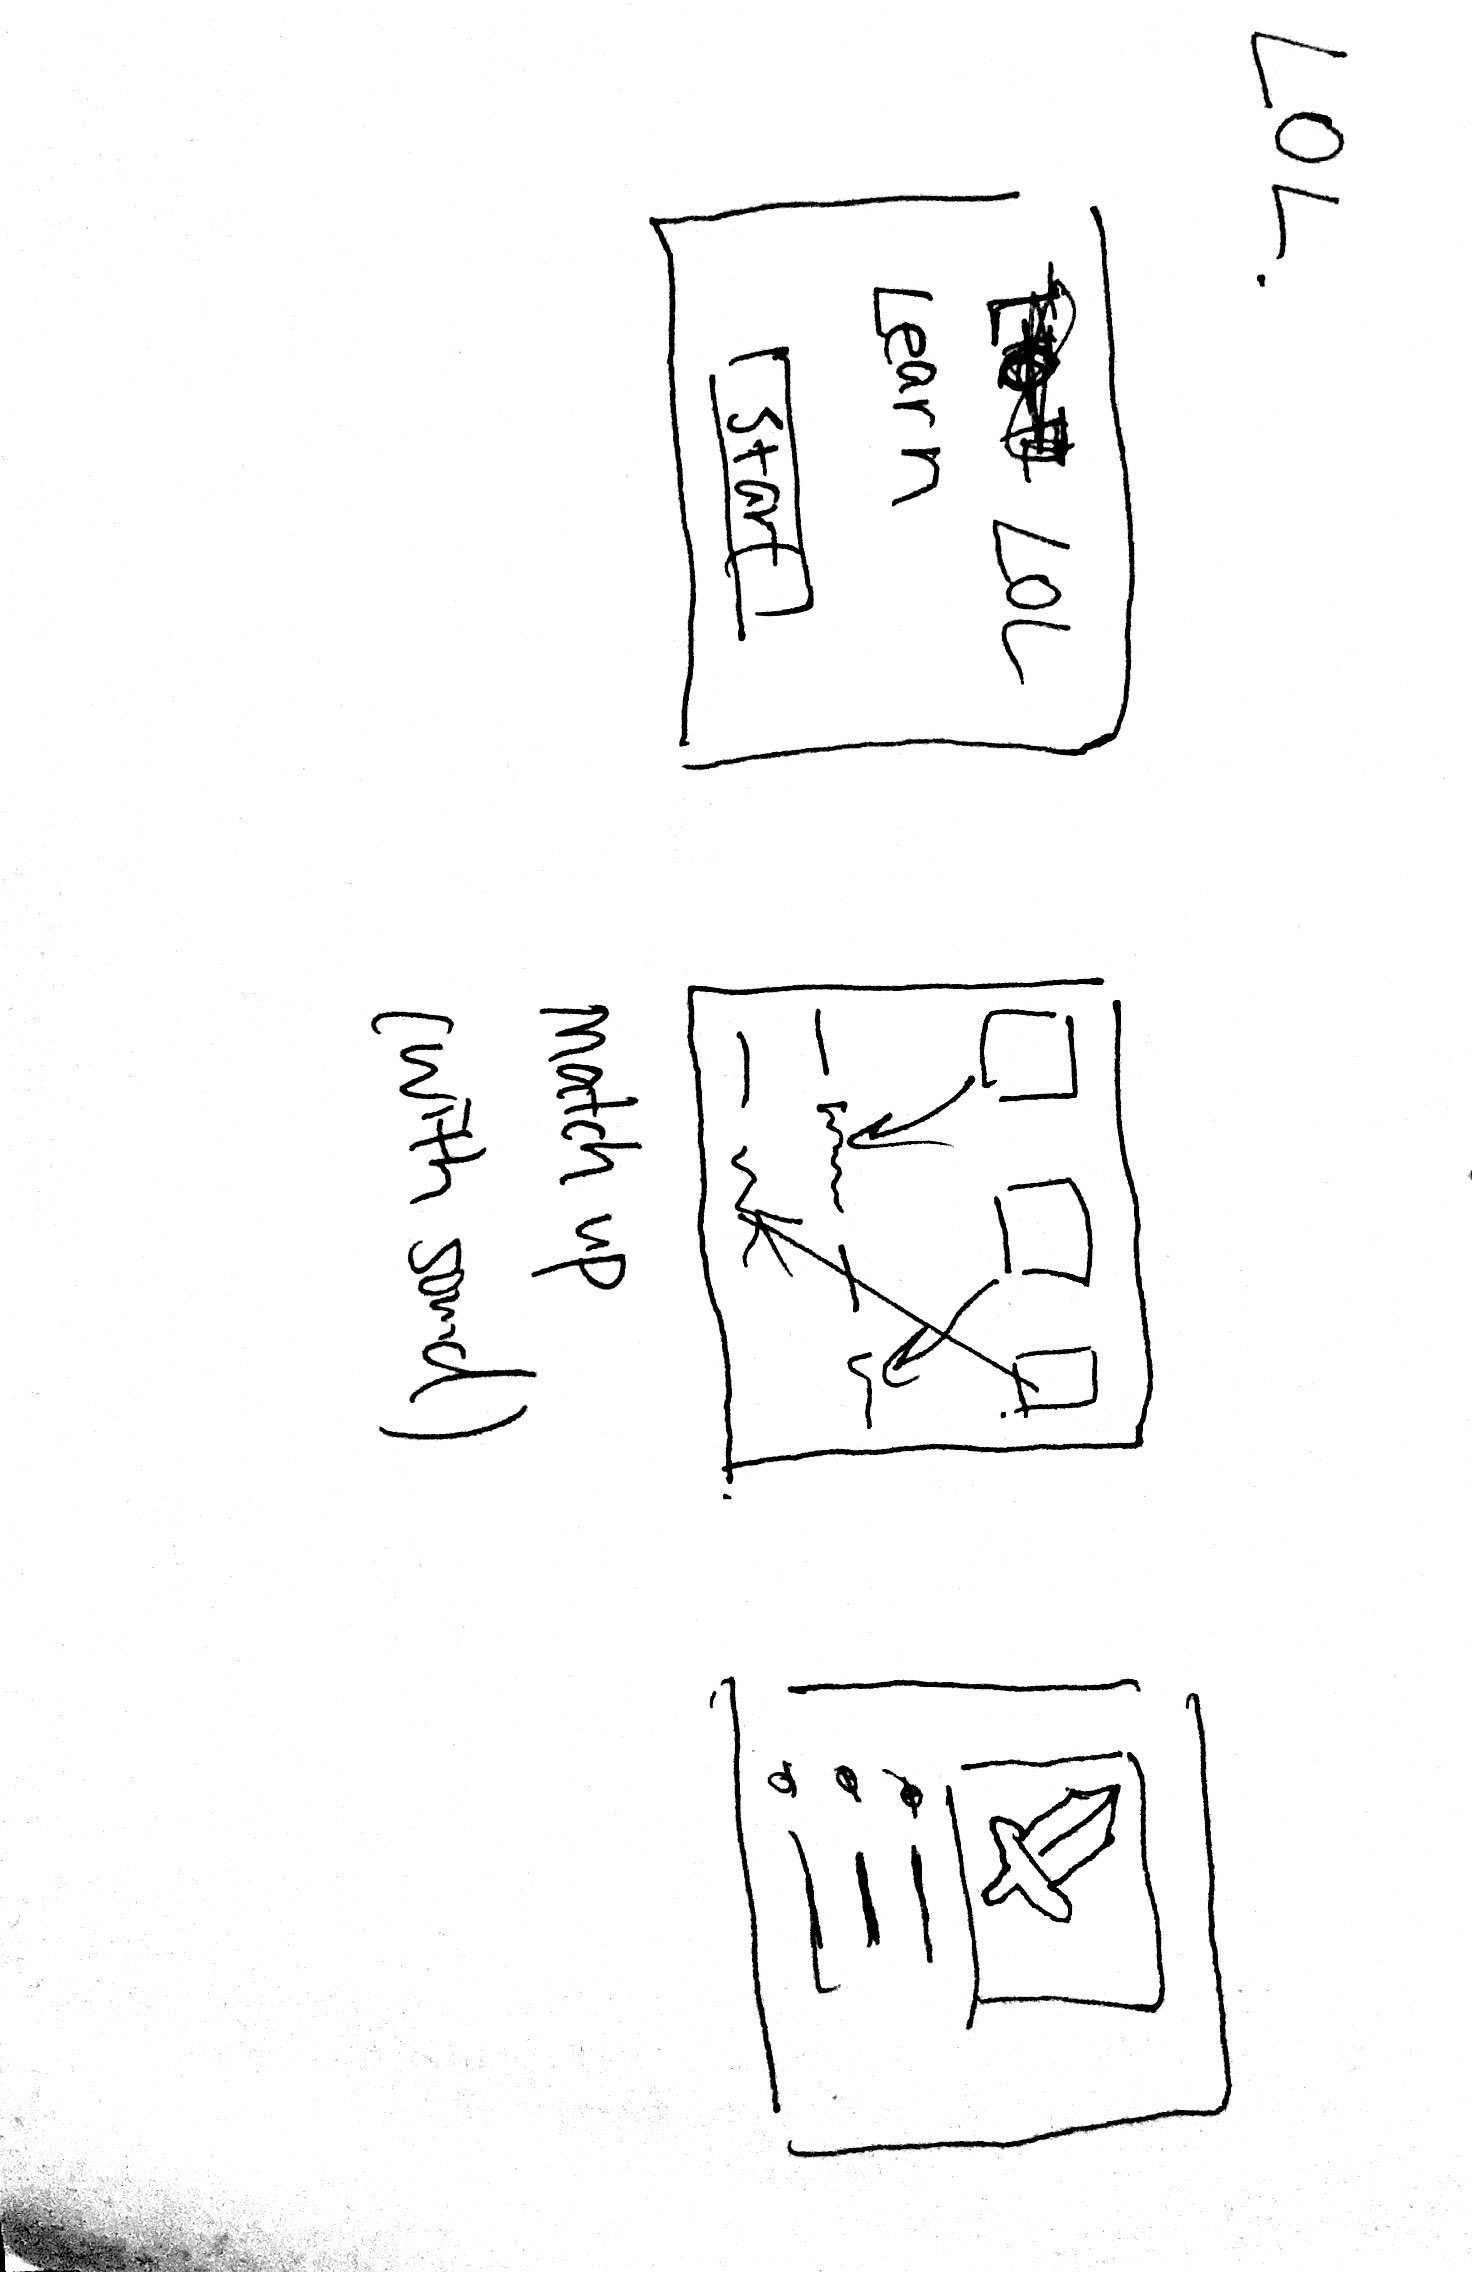 LOL.
LOL
Learn
Start
Match up
(with sound)